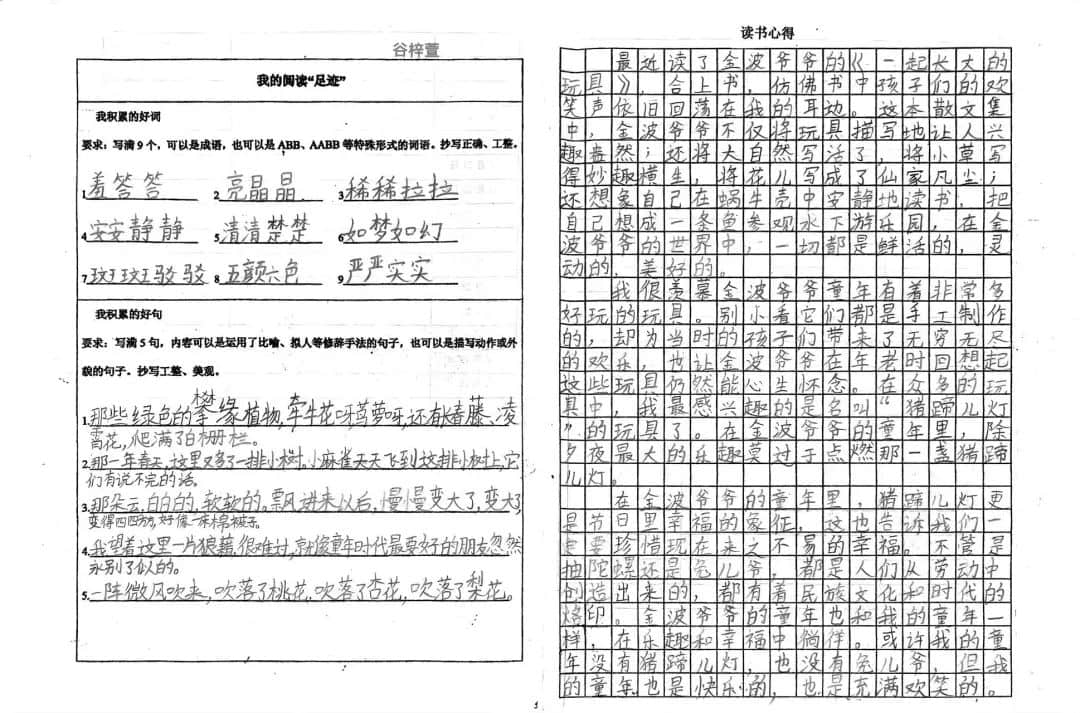 谷梓萱
我的阅读“足迹”
我积累的好词
要求：写满9个，可以是成语，也可以是ABB、AABB等特殊形式的词语。抄写正确、工整。
1.羞答答 2.亮晶晶 3.稀稀拉拉
4.安安静静 5.清清楚楚 6.如梦如幻
7.斑斑驳驳 8.五颜六色 9.严严实实
我积累的好句
要求：写满5句，内容可以是运用了比喻、拟人等修辞手法的句子，也可以是描写动作或外
貌的句子。抄写工整、美观。
1.那些绿色的攀缘植物，牵牛花呀茑萝呀，还有长春藤、凌
霄花，爬满了白栅栏。
2.那一年春天，这里又多了一排小树。小麻雀天天飞到这排小树上，它
们有说不完的话。
3.那朵云，白白的，软软的。飘进来以后，慢慢变大了，变大了，
变得四四方方，好像一床棉被子。
4.我望着这里一片狼藉，很难过，就像童年时代最要好的朋友忽然
永别了似的。
5.一阵微风吹来，吹落了桃花，吹落了杏花，吹落了梨花。
读书心得
最近读了金波爷爷的《一起长大的
玩具》，合上书，仿佛书中孩子们的欢
笑声依旧回荡在我的耳边。这本散文集
中，金波爷爷不仅将玩具描写地让人兴
趣盎然；还将大自然写活了，将小草写
得妙趣横生，将花儿写成了仙家凡尘；
还想象自己在蜗牛壳中安静地读书，把
自己想成一条鱼参观水下游乐园，在金
波爷爷的世界中，一切都是鲜活的，灵
动的，美好的。
我很羡慕金波爷爷童年有着非常多
好玩的玩具。别小看它们都是手工制作
的，却为当时的孩子们带来了无穷无尽
的欢乐，也让金波爷爷在年老时回想起
这些玩具仍然能心生怀念。在众多的玩
具中，我最感兴趣的是名叫“猪蹄儿灯
”的玩具了。在金波爷爷的童年里，除
夕夜最大的乐趣莫过于点燃那一盏猪蹄
儿灯。
在金波爷爷的童年里，猪蹄儿灯更
是节日里幸福的象征，这也告诉我们一
定要珍惜现在来之不易的幸福。不管是
抽陀螺还是兔儿爷，都是人们从劳动中
创造出来的，都有着民族文化和时代的
烙印。金波爷爷的童年也和我的童年一
样，在乐趣和幸福中徜徉。或许我的童
年没有猪蹄儿灯，也没有兔儿爷，但我
的童年也是快乐的，也是充满欢笑的。